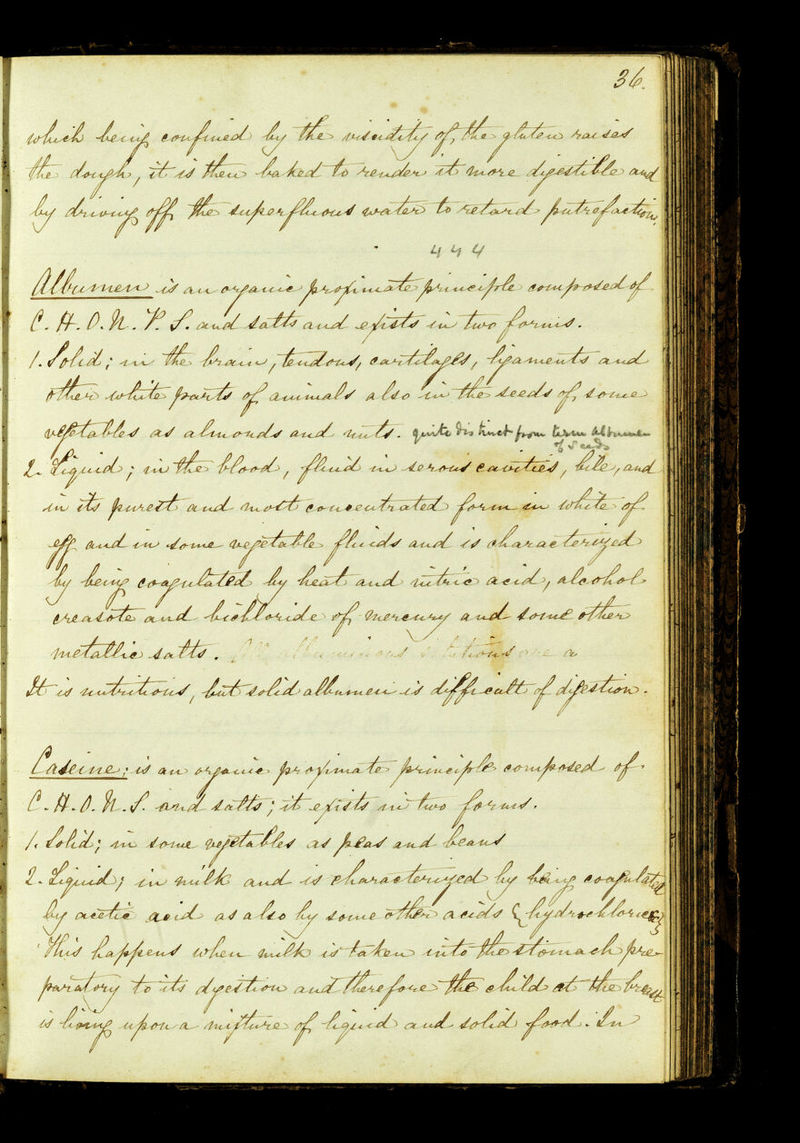 36.
which being confined by the viscidity of the gluten raises
the dough, it is then baked to render it more digestible and
by driving off the superfluous water to retard putrefaction.
444
Albumen is an organic proximate principle composed of
C. H. O. N. P. S. and salts and exists in two forms.
1. Solid; in the brain, tendons, cartilages, ligaments and
other white parts of animals also in the seeds of some
vegetables as almonds and nuts. quite distinct from term Albumen
of Seeds
2. Liquid; in the blood, fluid in serous cavities, bile, and
in its purest and most concentrated form in white of
egg and in some vegetable fluids and is characterized
by being coagulated by heat and nitric acid, alcohol
creasote and bichloride of mercury and some other
metallic salts. All albuminous solutions are a
It is nutritious, but solid albumen is difficult of digestion.
Caseine; is an organic proximate principle composed of
C. H. O. N. S. and salts; it exists in two forms.
1. Solid; in some vegetables as peas and beans
2. Liquid; in milk and is characterized by being coagulated
by acetic acid as also by some other acids {hydrochloric &c}
This happens when milk is taken into the stomach pre-
paratory to its digestion and therefore the child at the breast
is living upon a mixture of liquid and solid food. In